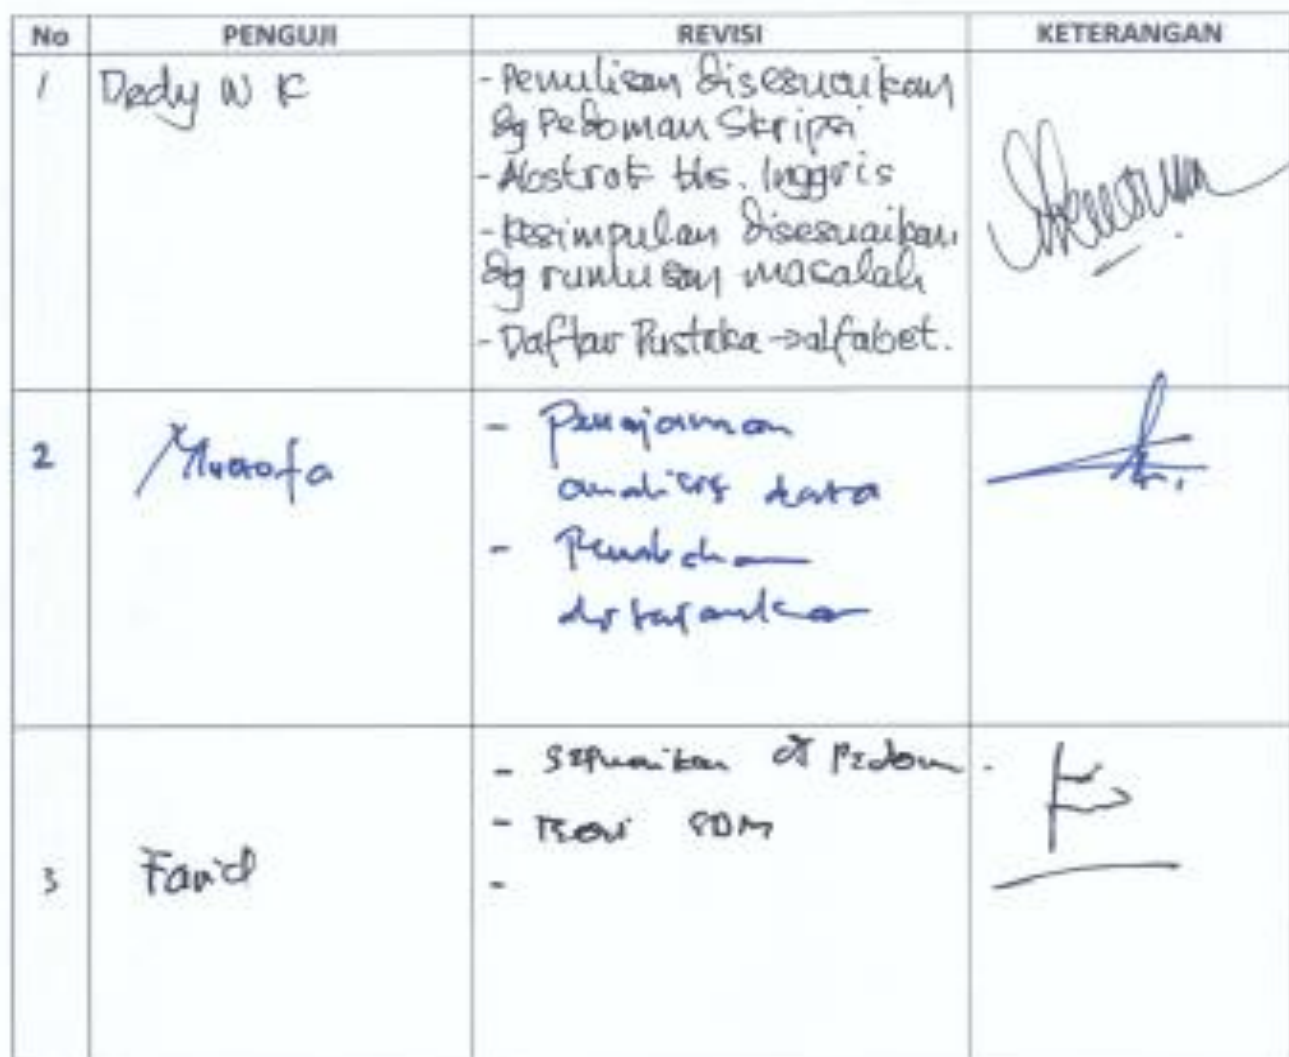 No PENGUJI REVISI KETERANGAN
1 Dedy W K
- Penulisan disesuaikan
dg Pedoman Skripsi
- Abstrak bhs. Inggris
- Kesimpulan disesuaikan
dg rumusan masalah
- Daftar Pustaka → alfabet.
2 Mustofa
- Penajaman
analisis data
- 
3 Farid
- Sesuaikan dg Pedom.
- Teori SDM
-